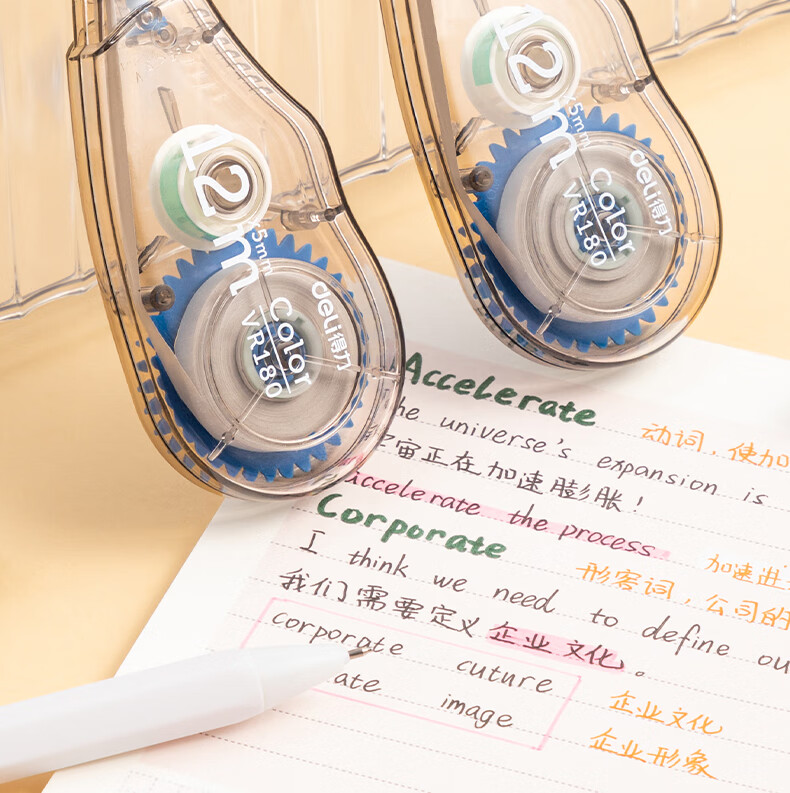 12m
5mm
deli得力
Color
VR180
12m
5mm
deli得力
Color
VR180
Accelerate
动词，使加
the universe's expansion is
宇宙正在加速膨胀！
accelerate the process
加速进
Corporate
形客词，公司的
I think we need to define ou
我们需要定义企业文化。
corporate cuture
企业文化
ate image
企业形象